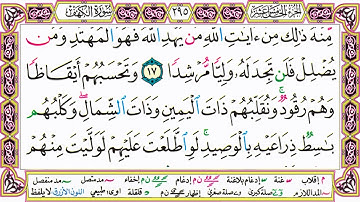 الجزء الخامس عشر ٢٩٥ سورة الكهف
مِنْهُ ذَٰلِكَ مِنْ ءَايَٰتِ اللَّهِ مَن يَهْدِ اللَّهُ فَهُوَ الْمُهْتَدِ وَمَن
يُضْلِلْ فَلَن تَجِدَ لَهُ وَلِيًّا مُّرْشِدًا ١٧ وَتَحْسَبُهُمْ أَيْقَاظًا
وَهُمْ رُقُودٌ وَنُقَلِّبُهُمْ ذَاتَ الْيَمِينِ وَذَاتَ الشِّمَالِ وَكَلْبُهُم
بَٰسِطٌ ذِرَاعَيْهِ بِالْوَصِيدِ لَوِ اطَّلَعْتَ عَلَيْهِمْ لَوَلَّيْتَ مِنْهُمْ